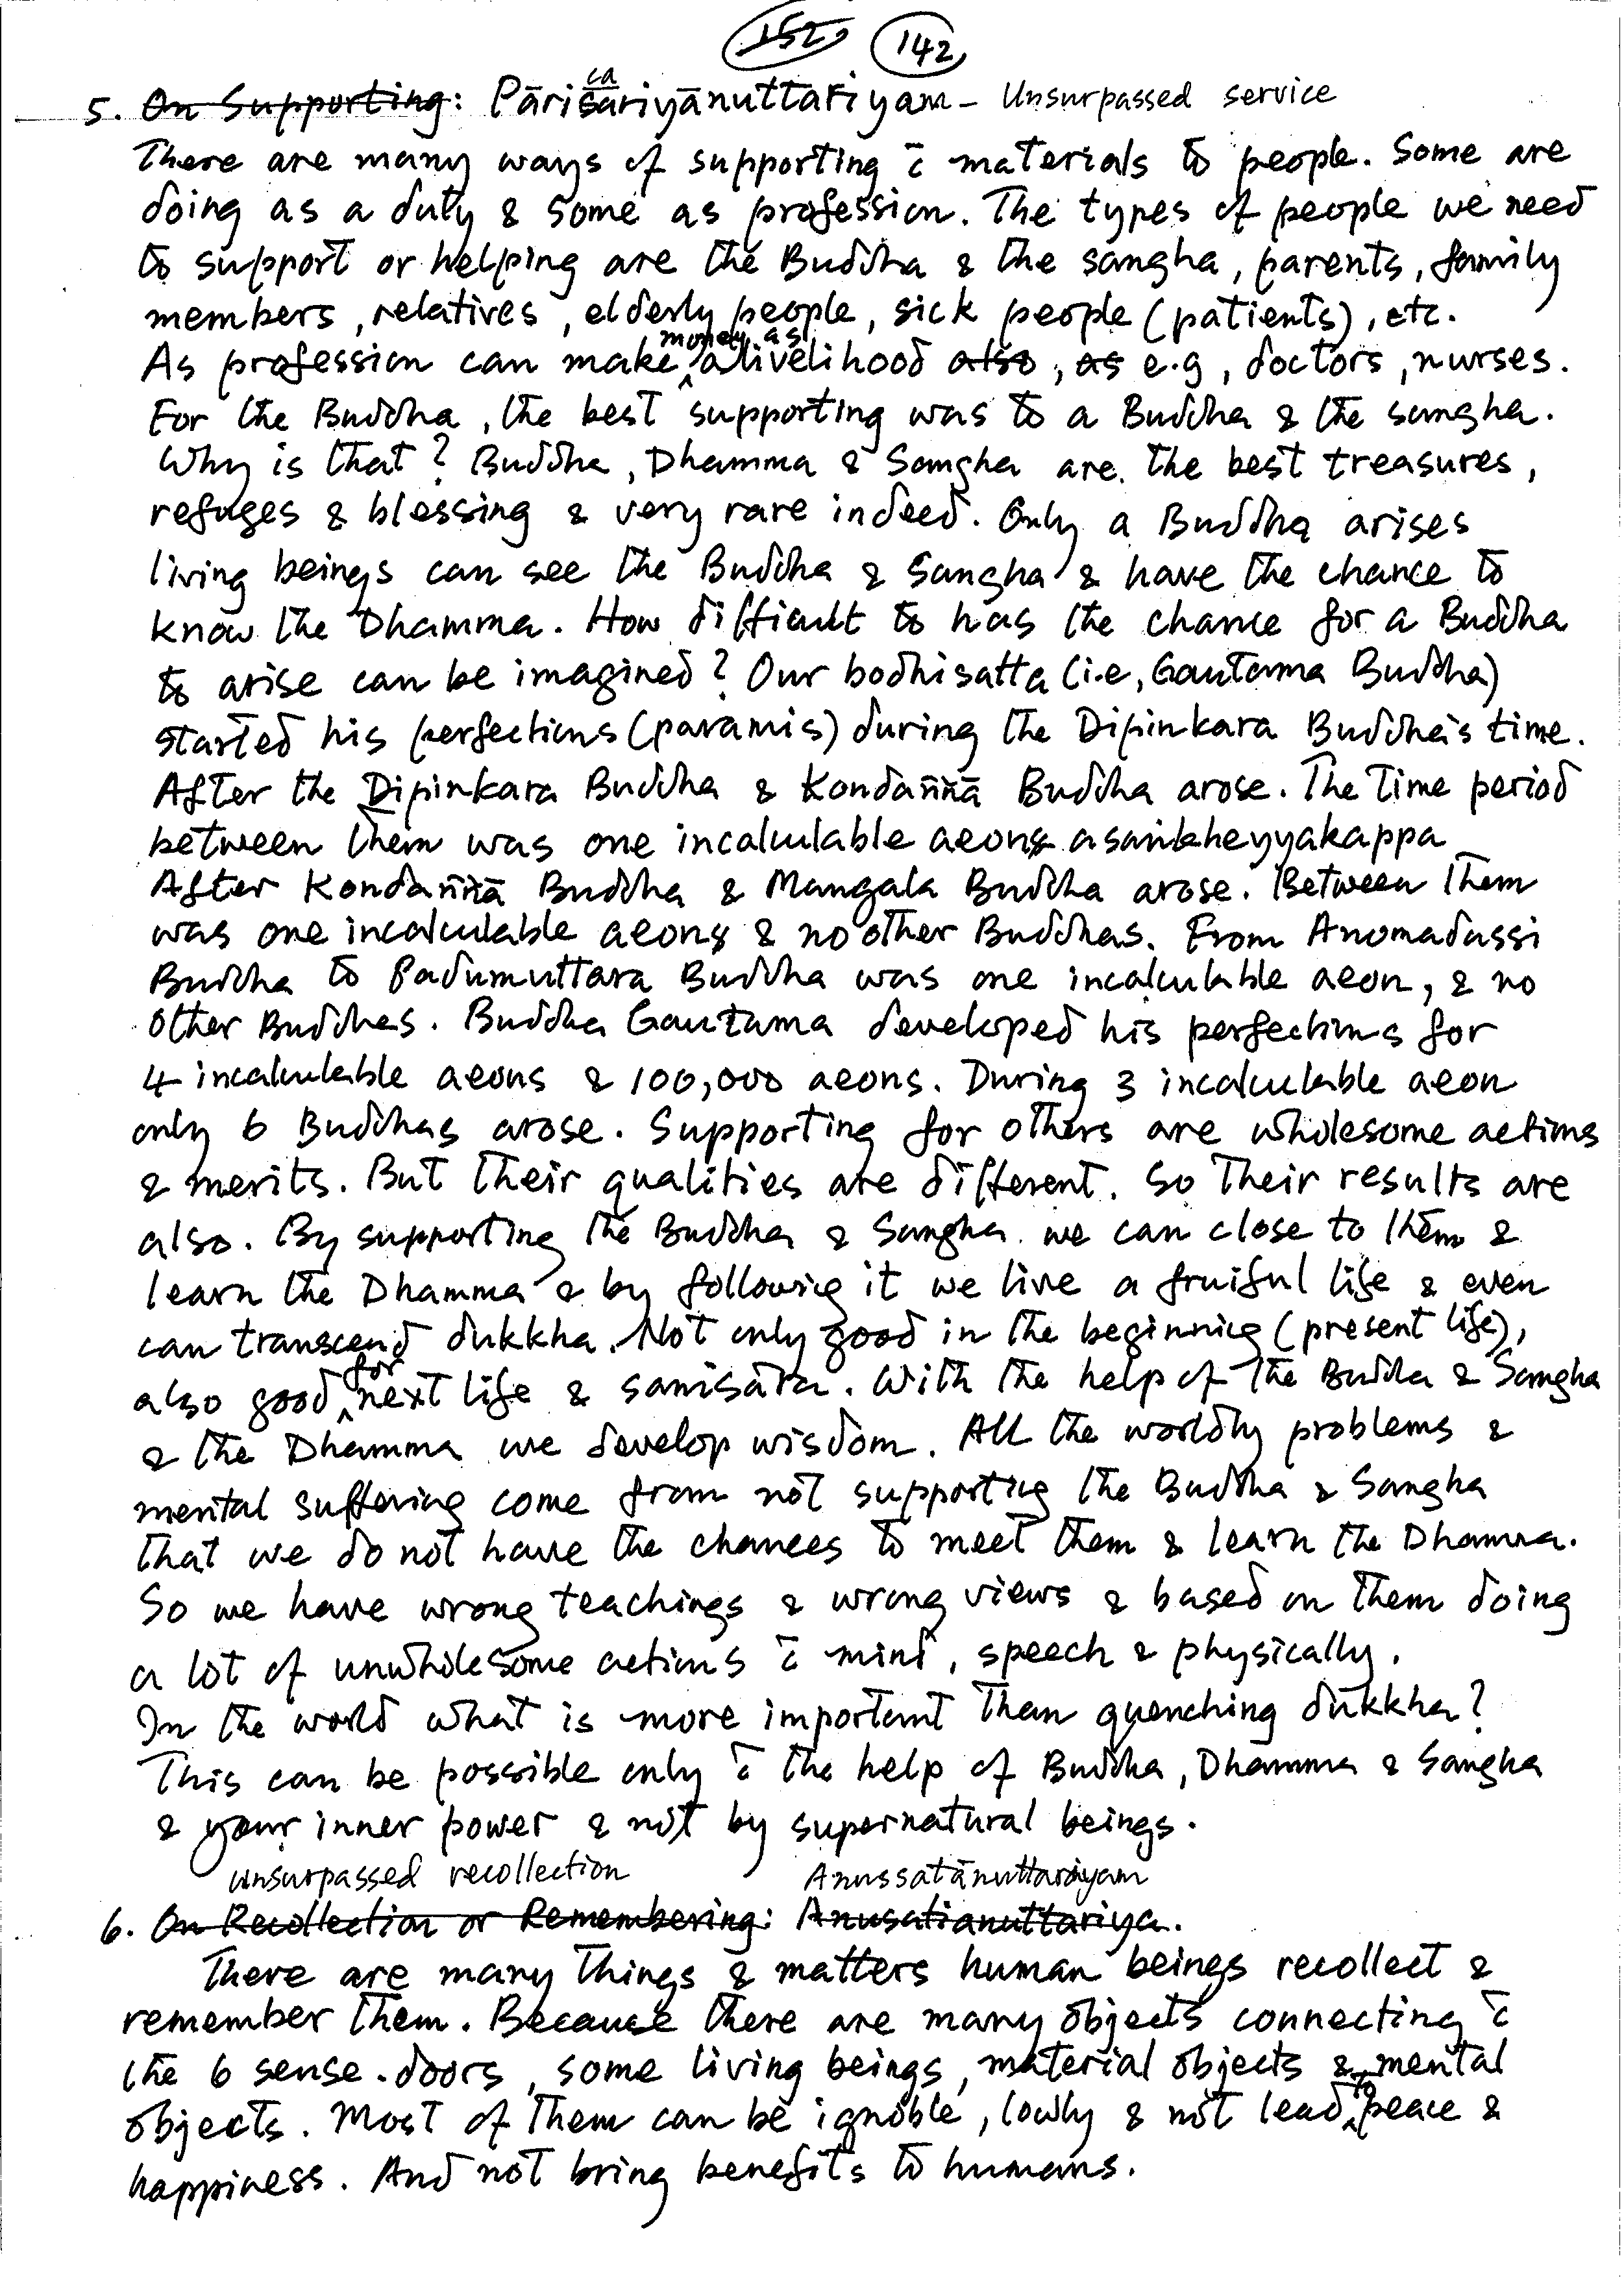 152 142
5. On Supporting: Pāricariyānuttariyam - Unsurpassed service
There are many ways of supporting c̄ materials to people. Some are
doing as a duty & some as profession. The types of people we need
to support or helping are the Buddha & the sangha, parents, family
members, relatives, elderly people, sick people (patients), etc.
As profession can make money as a livelihood also, as e.g, doctors, nurses.
For the Buddha, the best supporting was to a Buddha & the sangha.
Why is that? Buddha, Dhamma & Sangha are the best treasures,
refuges & blessing & very rare indeed. Only a Buddha arises
living beings can see the Buddha & Sangha & have the chance to
know the Dhamma. How difficult to has the chance for a Buddha
to arise can be imagined? Our bodhisatta (i.e, Gautama Buddha)
started his perfections (paramis) during the Dipinkara Buddha's time.
After the Dipinkara Buddha & Kondaññā Buddha arose. The Time period
between them was one incalculable aeons asaṅkheyyakappa
After Kondaññā Buddha & Mangala Buddha arose. Between Them
was one incalculable aeons & no other Buddhas. From Anomadassi
Buddha to Padumuttara Buddha was one incalculable aeon, & no
other Buddhas. Buddha Gautama developed his perfections for
4 incalculable aeons & 100,000 aeons. During 3 incalculable aeon
only 6 Buddhas arose. Supporting for others are wholesome actions
& merits. But their qualities are different. So Their results are
also. By supporting the Buddha & Sangha we can close to them &
learn the Dhamma & by following it we live a fruiful life & even
can transcend dukkha. Not only good in the beginning (present life),
also good for next life & saṁsāra. With the help of the Buddha & Sangha
& the Dhamma we develop wisdom. All the worldly problems &
mental suffering come from not supporting the Buddha & Sangha
that we do not have the chances to meet them & learn the Dhamma.
So we have wrong teachings & wrong views & based on them doing
a lot of unwholesome actions c̄ mind, speech & physically.
In the world what is more important than quenching dukkha?
This can be possible only c̄ the help of Buddha, Dhamma & Sangha
& your inner power & not by supernatural beings.
unsurpassed recollection Anussatānuttariyam
6. On Recollection or Remembering: Anusatianuttariya.
There are many things & matters human beings recollect &
remember them. Because there are many objects connecting c̄
the 6 sense-doors, some living beings, material objects & mental
objects. Most of them can be ignoble, lowly & not lead to peace &
happiness. And not bring benefits to humans.